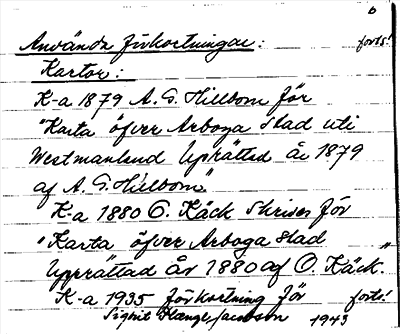 6
Använda förkortningar: forts!
Kartor:
K-a 1879 A. G. Hillbom för
"Karta öfver Arboga Stad uti
Westmanland Upprättad år 1879
af A. G. Hillbom"
K-a 1880 O. Käck skrives för
"Karta öfver Arboga Stad
Upprättad År 1880 af O. Käck."
K-a 1935 förkortning för forts!
Sigrid Jacobson 1943